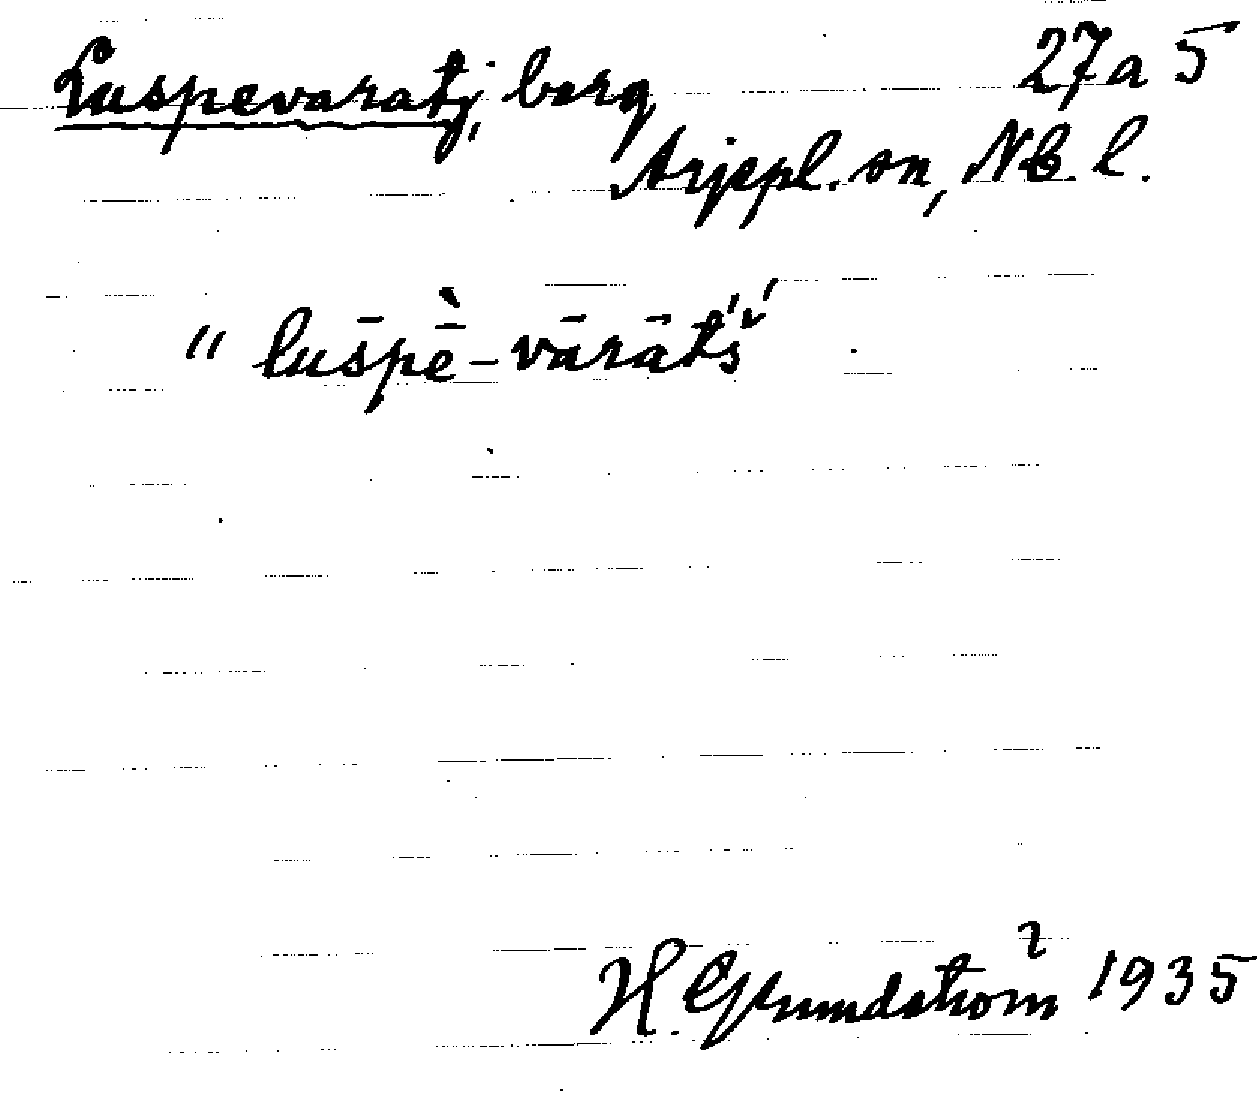 Luspevaratj, berg 27a 5
Arjepl. sn, Nb. l.
" lūspḕ-vārāt́š́
H. Grundström 1935